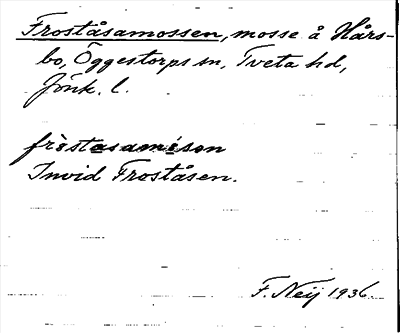 Froståsamossen, mosse å Hårs-
bo, Öggestorps sn, Tveta hd,
Jönk. l.
Invid Froståsen.
F. Neij 1936